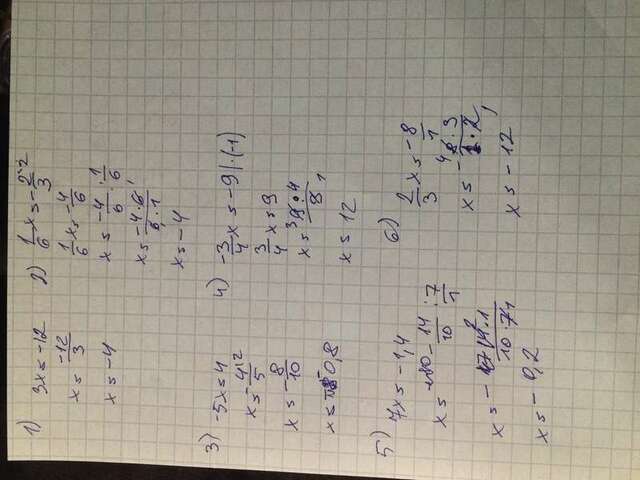 1) 3x = -12
x = -12/3
x = -4
2) 1/6 x = -2/3 ·2
1/6 x = -4/6
x = -4/6 : 1/6
x = -4·6/6·1
x = -4
3) -5x = 4
x = -4/5 ·2
x = -8/10
x = 0,8
4) -3/4 x = -9 |·(-1)
3/4 x = 9
x = 9·4/
x = 12
5) 7x = -1,4
x = -14/10 : 7/1
x = -14·1/10·7
x = -0,2
6) 2/3 x = -8/1
x = -8·3/1·2
x = -12